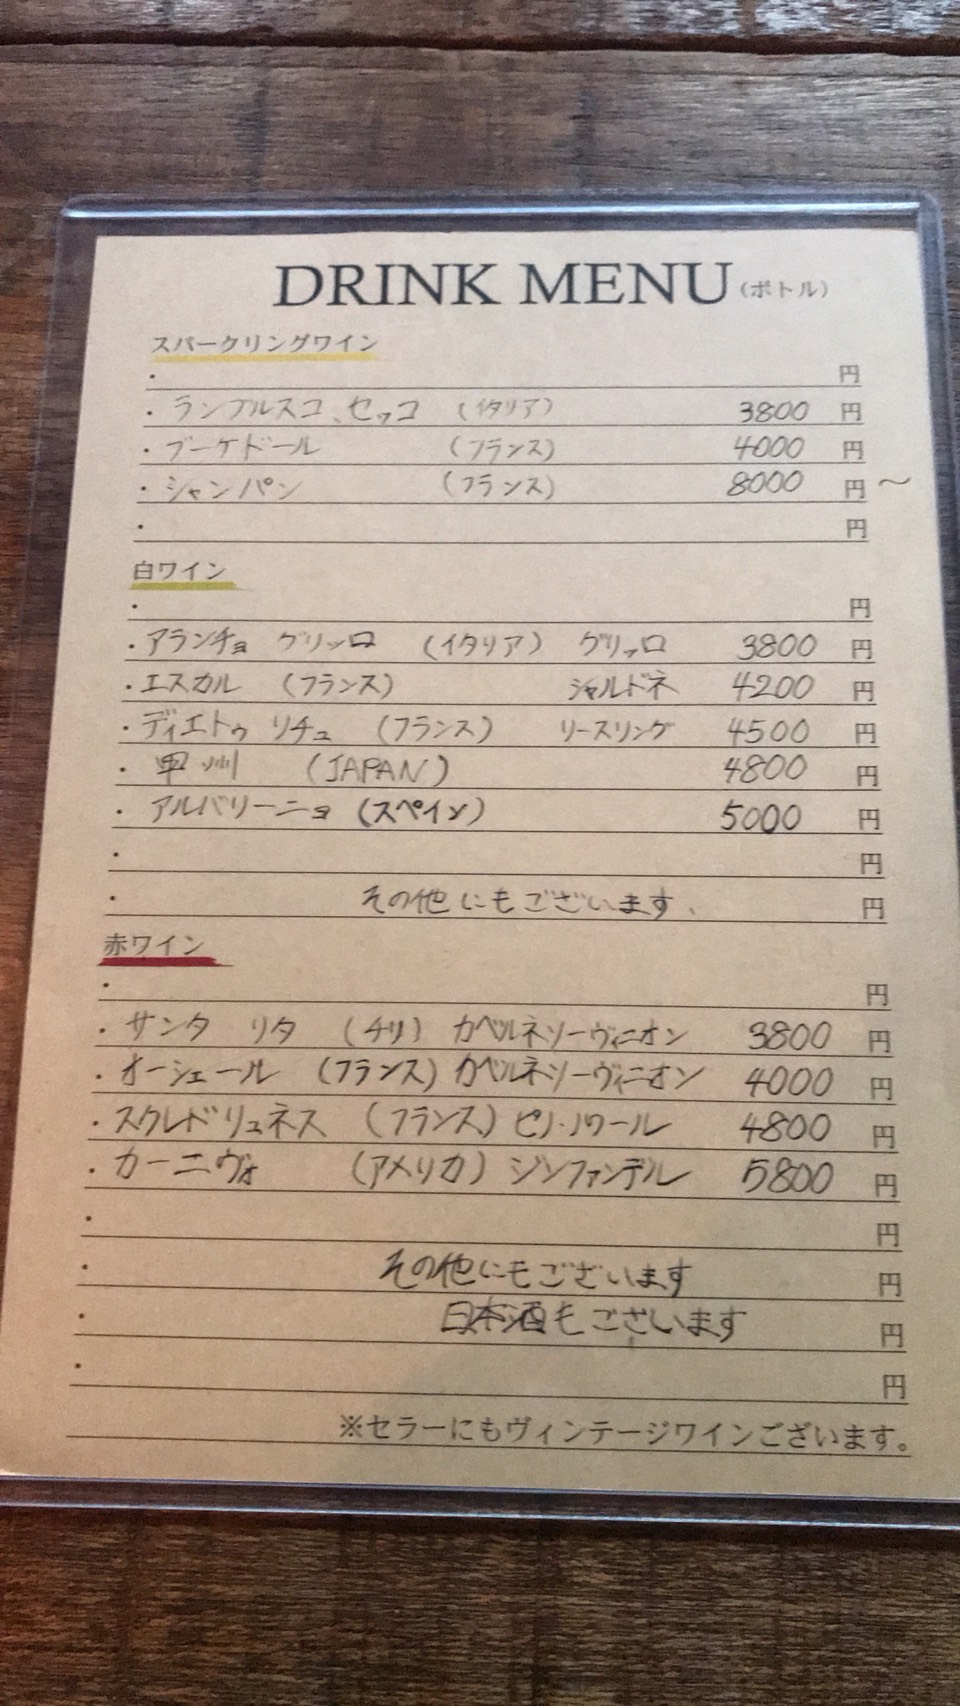 DRINK MENU（ボトル）
スパークリングワイン
・ 円
・ランブルスコ、セッコ （イタリア） 3800 円
・ブーケドール （フランス） 4000 円
・シャンパン （フランス） 8000 円～
・ 円
白ワイン
・ 円
・アランチョ グリッロ （イタリア） グリッロ 3800 円
・エスカル （フランス） シャルドネ 4200 円
・ディエトゥ リチュ （フランス） リースリング 4500 円
・甲州 （JAPAN） 4800 円
・アルバリーニョ （スペイン） 5000 円
・ 円
・ その他にもございます、 円
赤ワイン
・ 円
・サンタ リタ （チリ） カベルネソーヴィニオン 3800 円
・オーシェール （フランス） カベルネソーヴィニオン 4000 円
・スクレドリュネス （フランス） ピノ・ノワール 4800 円
・カーニヴォ （アメリカ） ジンファンデル 5800 円
・ 円
・ その他にもございます 円
・ 日本酒もございます 円
・ 円
※セラーにもヴィンテージワインございます。